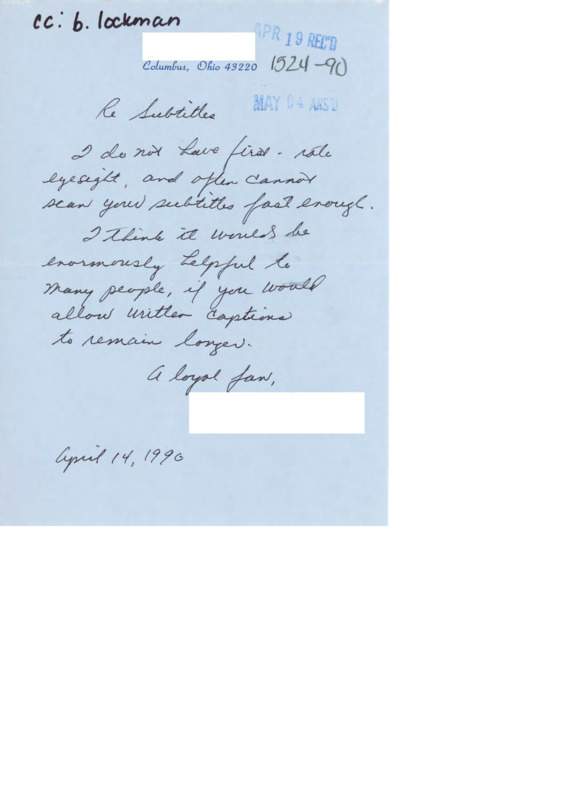 cc: b. lockman
APR 19 REC'D
Columbus, Ohio 43220 1524-90
MAY 04 ANS'D
Re Subtitles
I do not have first-rate
eyesight, and often cannot
scan your subtitles fast enough.
I think it would be
enormously helpful to
many people, if you would
allow written captions
to remain longer.
A loyal fan,
April 14, 1990